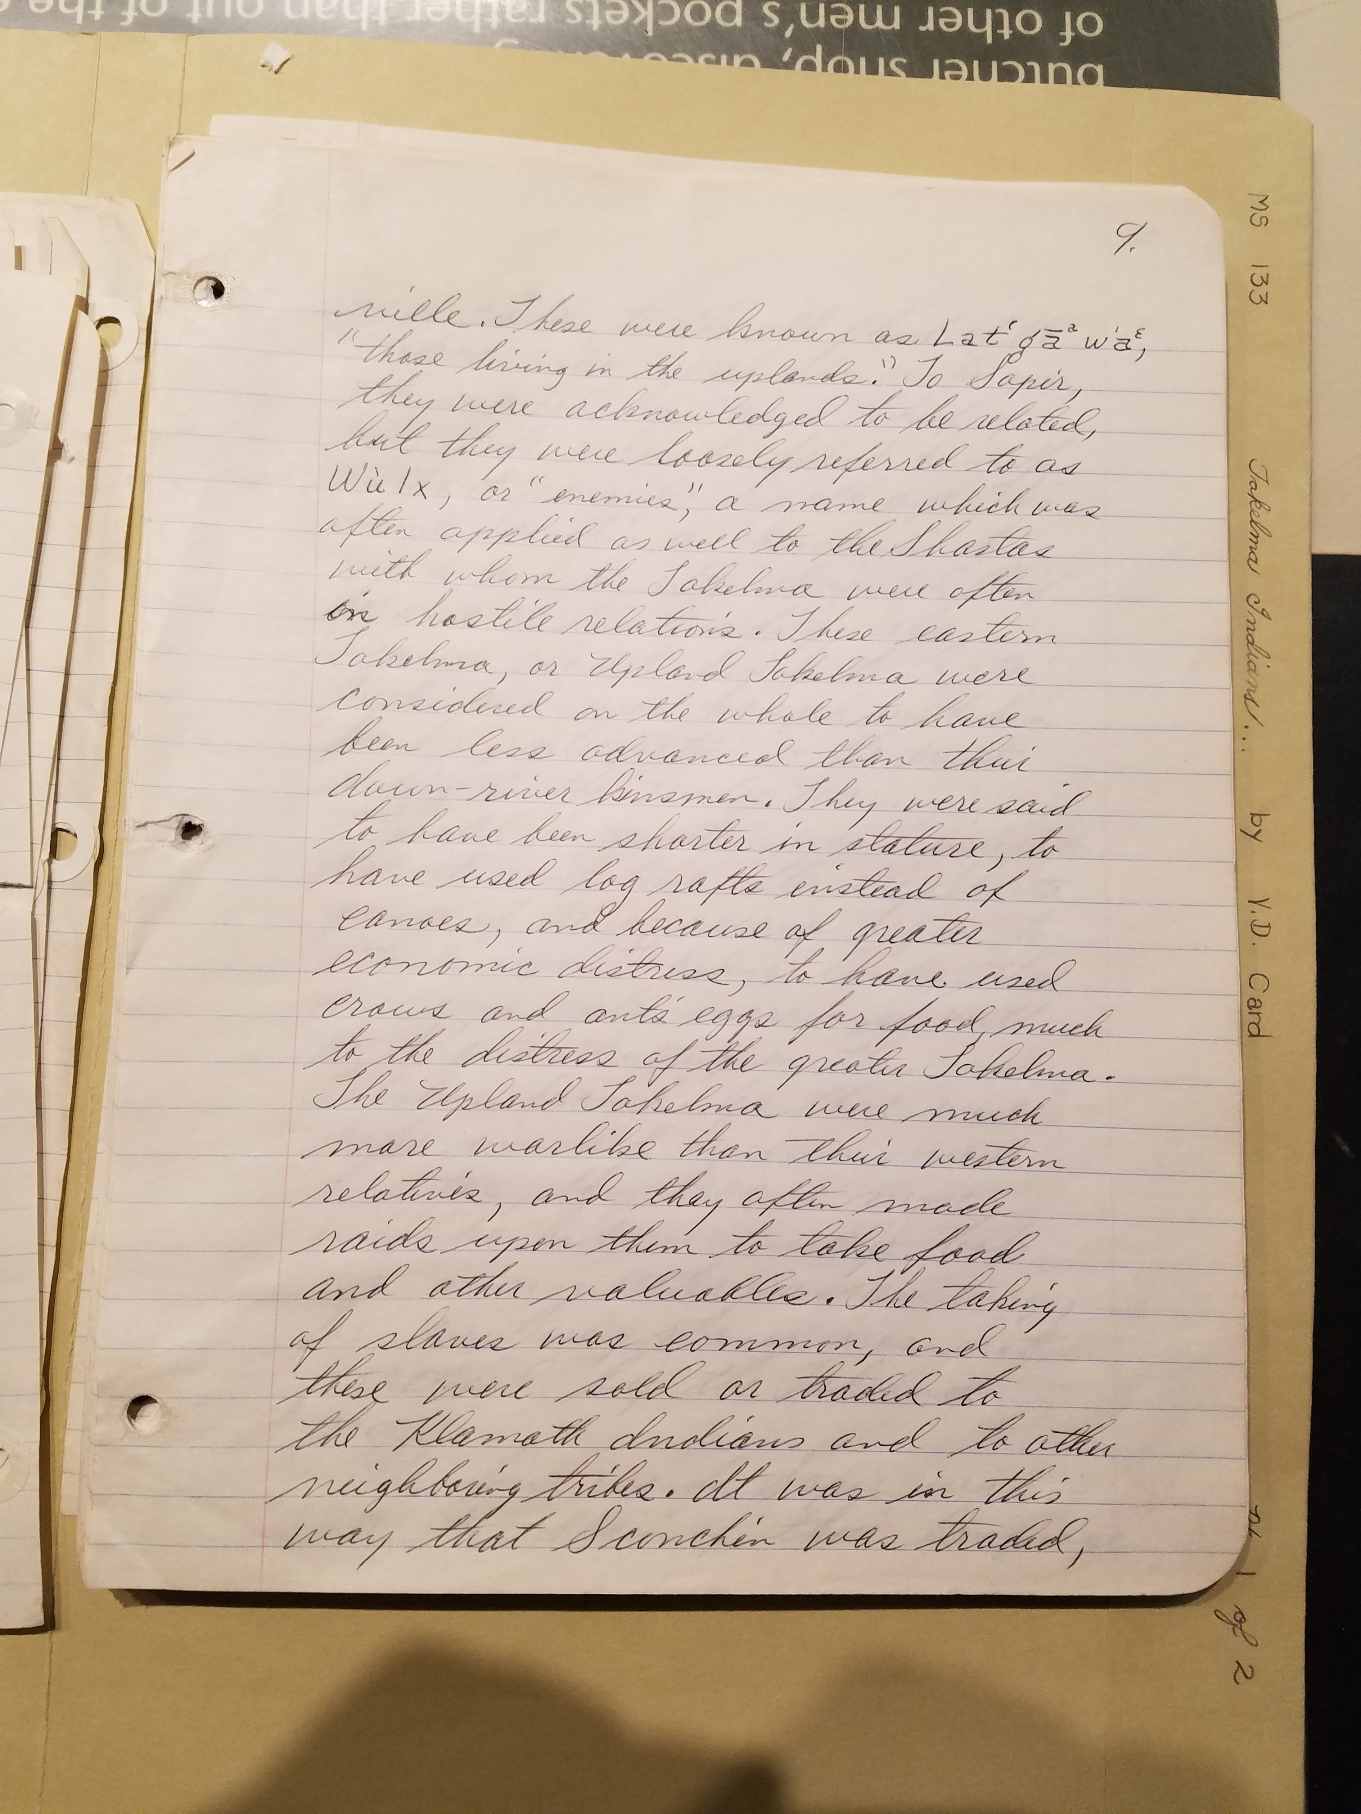 of other men's pockets rather than out of the
butcher shop,
9.
ville. These were known as Lat' gāᵃ wa̅ᵋ,
"those living in the uplands." To Sapir,
they were acknowledged to be related,
but they were loosely referred to as
Wùlx, or "enemies", a name which was
often applied as well to the Shastas
with whom the Takelma were often
in hostile relations. These eastern
Takelma, or Upland Takelma were
considered on the whole to have
been less advanced than their
down-river kinsmen. They were said
to have been shorter in stature, to
have used log rafts instead of
canoes, and because of greater
economic distress, to have used
crows and ants' eggs for food, much
to the distress of the greater Takelma.
The Upland Takelma were much
more warlike than their western
relatives, and they often made
raids upon them to take food
and other valuables. The taking
of slaves was common, and
these were sold or traded to
the Klamath Indians and to other
neighboring tribes. It was in this
way that Sconchin was traded,
MS 133 Takelma Indians... by Y.D. Card 1 of 2